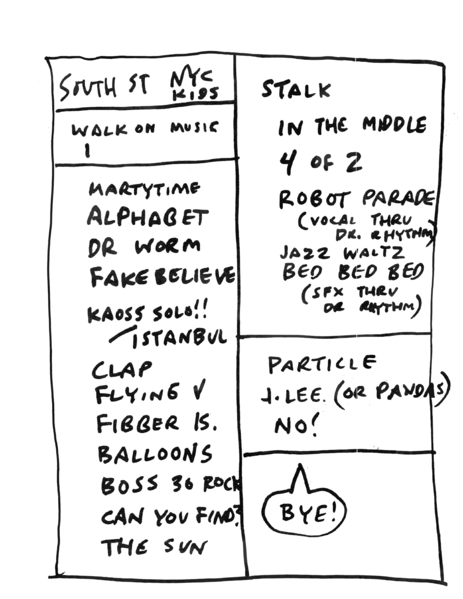 SOUTH ST NYC
KIDS
WALK ON MUSIC
1
MARTYTIME
ALPHABET
DR WORM
FAKE BELIEVE
KAOSS SOLO!!
ISTANBUL
CLAP
FLYING V
FIBBER IS.
BALLOONS
BOSS 30 ROCK
CAN YOU FIND?
THE SUN
STALK
IN THE MIDDLE
4 OF 2
ROBOT PARADE
(VOCAL THRU
DR. RHYTHM)
JAZZ WALTZ
BED BED BED
(SFX THRU
DR RHYTHM)
PARTICLE
J. LEE. (OR PANDAS)
NO!
BYE!